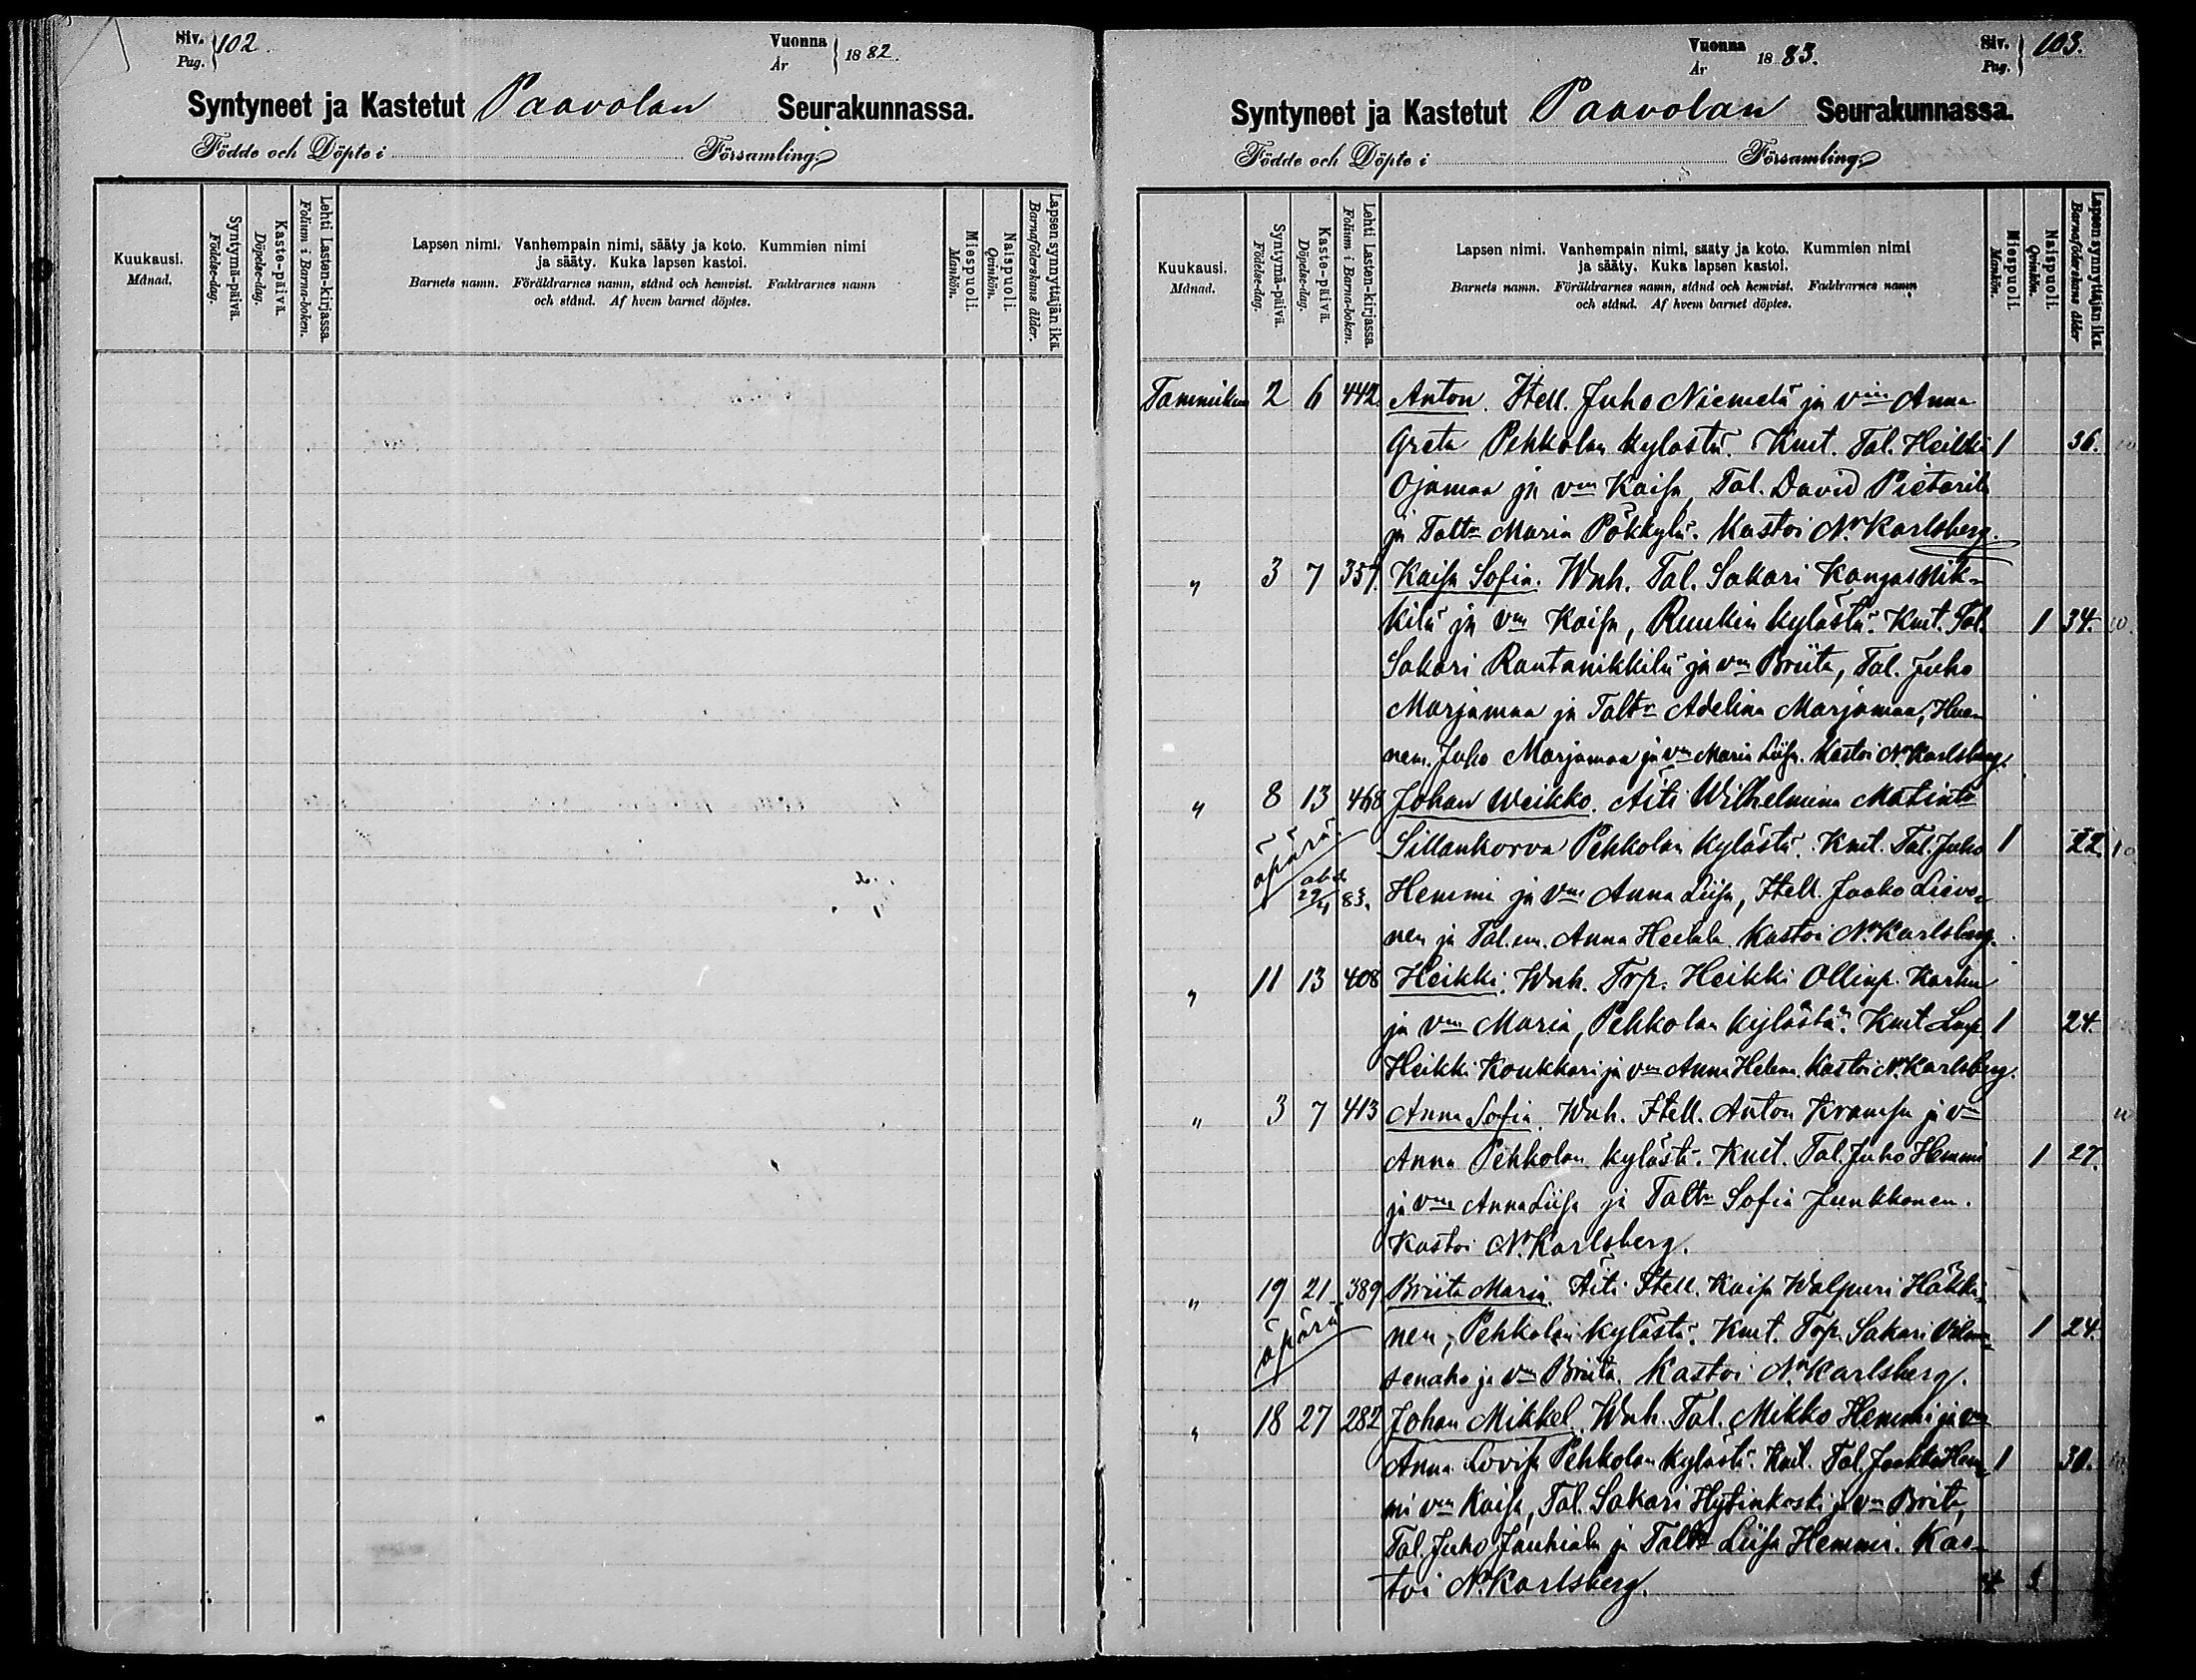 Siv. Pag. 102
Vuonna År 1882.
Syntyneet ja Kastetut Paavolan Seurakunnassa.
Födde och Döpte i Församling.
Kuukausi. Månad.
Syntymä-päivä. Födelse-dag.
Kaste-päivä. Döpelse-dag.
Lehti Lasten-kirjassa. Folium i Barna-boken.
Lapsen nimi. Vanhempain nimi, sääty ja koto. Kummien nimi
ja sääty. Kuka lapsen kastoi.
Barnets namn. Föräldrarnes namn, stånd och hemvist. Faddrarnes namn
och stånd. Af hvem barnet döptes.
Miespuoli. Mankön.
Naispuoli. Qvinkön.
Lapsen synnyttäjän ikä. Barnaföderskans ålder.
Vuonna År 1883.
Siv. Pag. 103.
Syntyneet ja Kastetut Paavolan Seurakunnassa.
Födde och Döpte i Församling.
Kuukausi. Månad.
Syntymä-päivä. Födelse-dag.
Kaste-päivä. Döpelse-dag.
Lehti Lasten-kirjassa. Folium i Barna-boken.
Lapsen nimi. Vanhempain nimi, sääty ja koto. Kummien nimi
ja sääty. Kuka lapsen kastoi.
Barnets namn. Föräldrarnes namn, stånd och hemvist. Faddrarnes namn
och stånd. Af hvem barnet döptes.
Miespuoli. Mankön.
Naispuoli. Qvinkön.
Lapsen synnyttäjän ikä. Barnaföderskans ålder
Tammikuu 2 6 442. Anton. Itell. Juho Niemelä ja vm Anna
Greta Pehkolan kylästä. Kmt. Tal. Heikki 1 36.
Ojamaa ja vm Kaisa, Tal. David Pietarila
ja Taltr Maria Pökkylä. Kastoi N. Karlsberg.
" 3 7 357. Kaisa Sofia. Wnh. Tal. Sakari Kangasnik-
kilä ja vm Kaisa, Ruukin kylästä. Kmt. Tal. 1 34.
Sakari Rautanikkilä ja vm Briita, Tal. Juho
Marjamaa ja Taltr Adelina Marjamaa,
Juho Marjamaa ja vm Maria Liisa. Kastoi N. Karlsberg.
" 8 13 468 Johan Weikko. Äiti Wilhelmina
äpärä Sillankorva Pehkolan kylästä. Kmt. Tal. Juho 1 22.
83. Hemmi ja vm Anna Liisa, Itell. Jaako Lievo-
nen ja Tal. em. Anna Heikkala. Kastoi N. Karlsberg.
" 11 13 408 Heikki. Wnh. Trp. Heikki Ollinp. Karhu
ja vm Maria, Pehkolan kylästä. Kmt 1 24.
Heikki Koukkari ja vm Anna Helena. Kastoi N. Karlsberg.
" 3 7 413 Anna Sofia. Wnh. Itell. Anton Kramsu ja vm
Anna Pehkolan kylästä. Kmt. Tal. Juho Hemmi 1 27.
ja vm Anna Liisa ja Taltr Sofia Junkkonen.
Kastoi N. Karlsberg.
" 19 21 389 Briita Maria. Äiti Itell. Kaisa Walpuri Häkki-
äpärä nen, Pehkolan kylästä. Kmt. Trp. Sakari 1 24.
senaho ja vm Briita. Kastoi N. Karlsberg.
" 18 27 282 Johan Mikkel. Wnh. Tal. Mikko Hemmi ja vm
Anna Lovisa Pehkolan kylästä. Kmt. Tal. Jaakko Hem- 1 30.
mi vm Kaisa, Tal. Sakari Hytinkoski ja vm Brita,
Tal. Juho Jauhiala ja Taltr Liisa Hemmi. Kas-
toi N. Karlsberg. 4 3